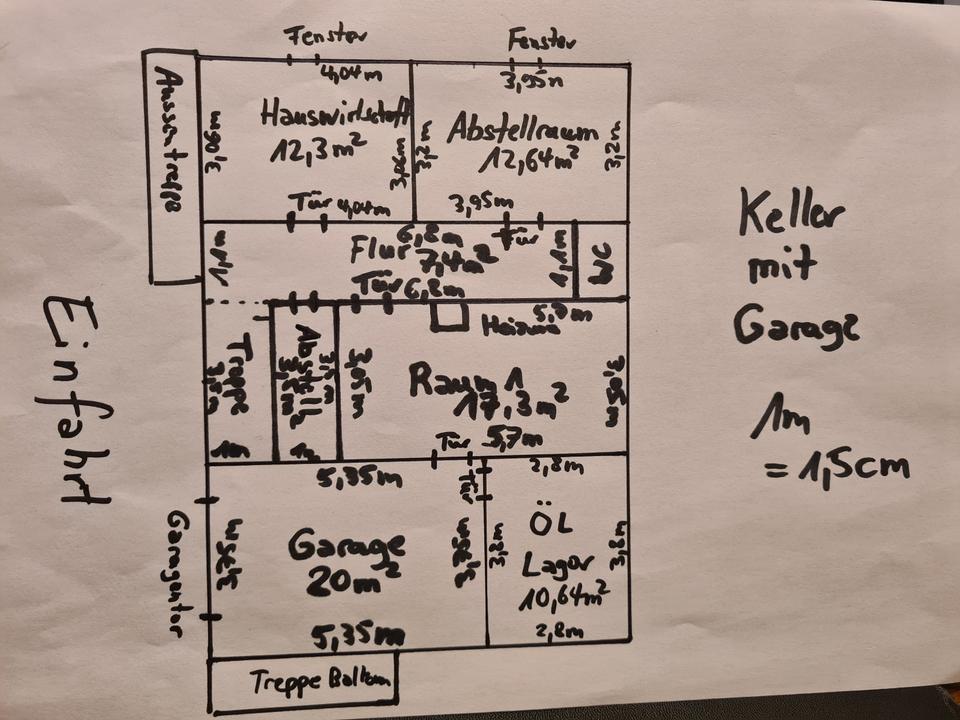 Fenster
Fenster
4,04m
3,95m
Aussentreppe
Hauswirtschaft
12,3m²
Abstellraum
12,64m²
3,2m
3,2m
Tür 4,04m
3,95m
Tür
6,8m
Flur 7,4m²
1,1m
1,1m
WC
Tür 6,8m
5,7m
Heizung
Treppe
Abstell
3,05m
Raum 1
17,3m²
3,05m
1m
1m
Tür 5,7m
Tür
5,35m
2,8m
Einfahrt
Garagentor
Garage
20m²
ÖL
Lager
10,64m²
3,8m
3,8m
5,35m
2,8m
Treppe Balkon
Keller
mit
Garage
1m
= 1,5cm